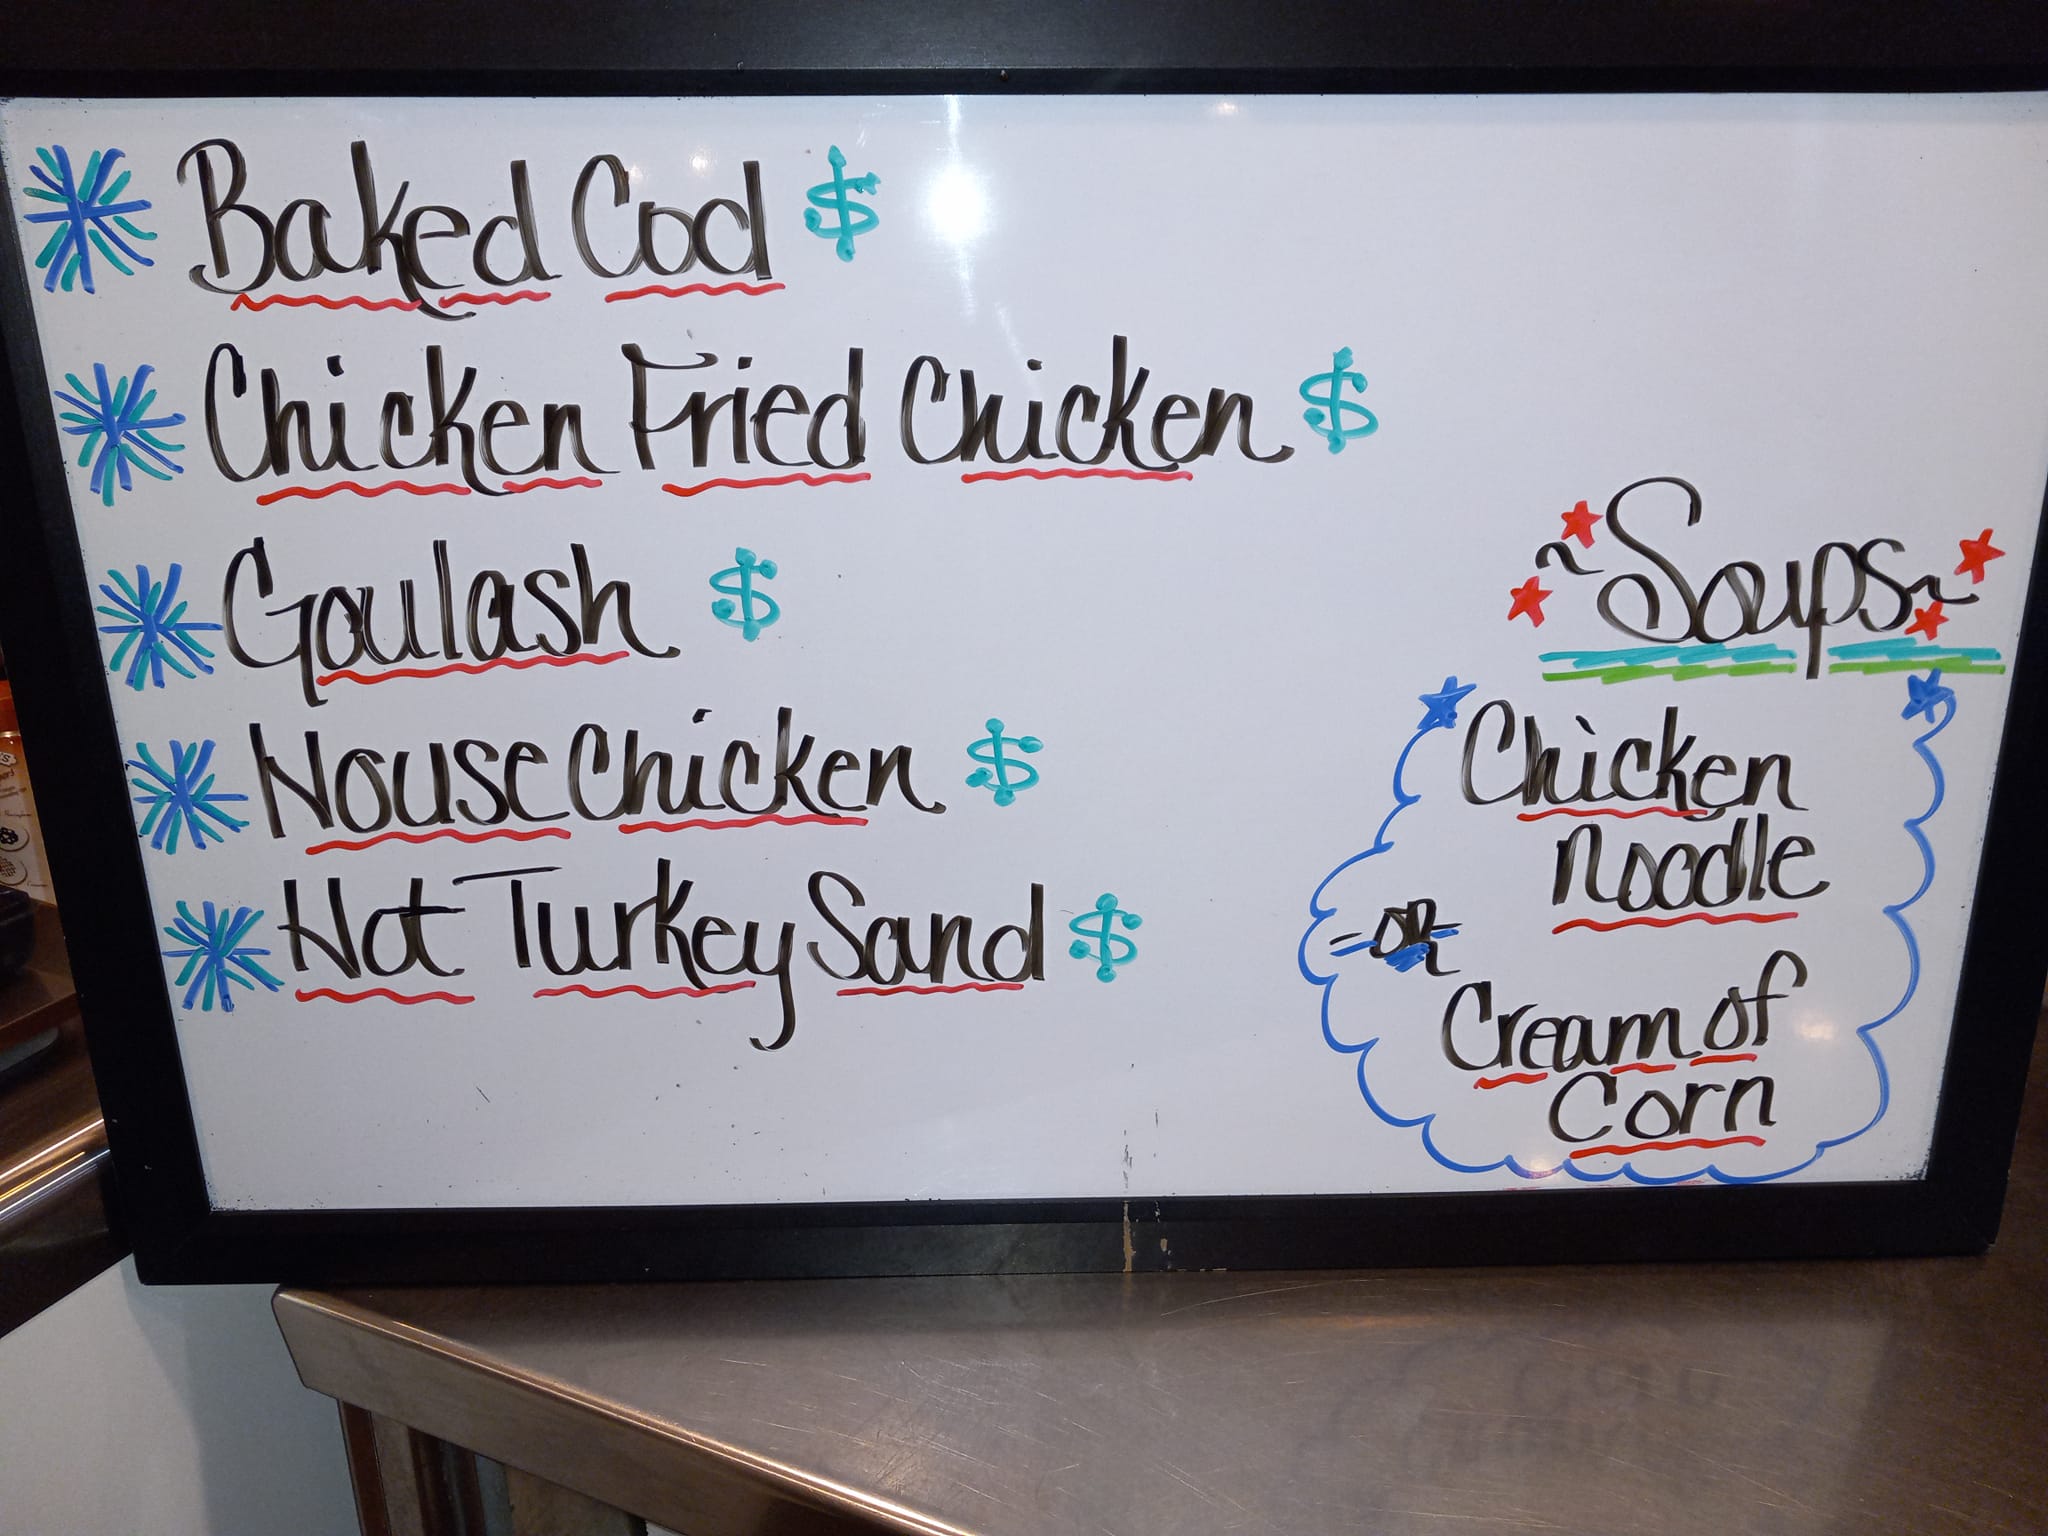 Baked Cod $
Chicken Fried Chicken $
Goulash $
House Chicken $
Hot Turkey Sand $
~Soups~
Chicken
Noodle
-OR-
Cream of
Corn